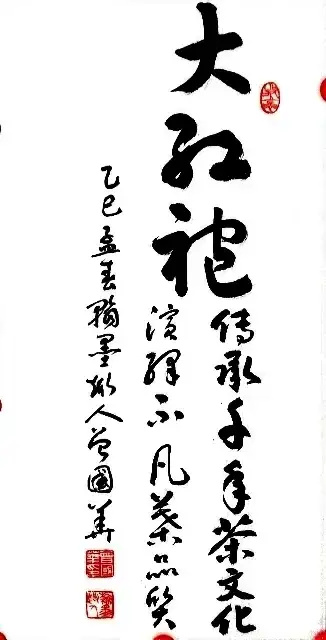 大红袍
傳承千年茶文化
演繹不凡葉品质
乙巳孟春翰墨人曾國華